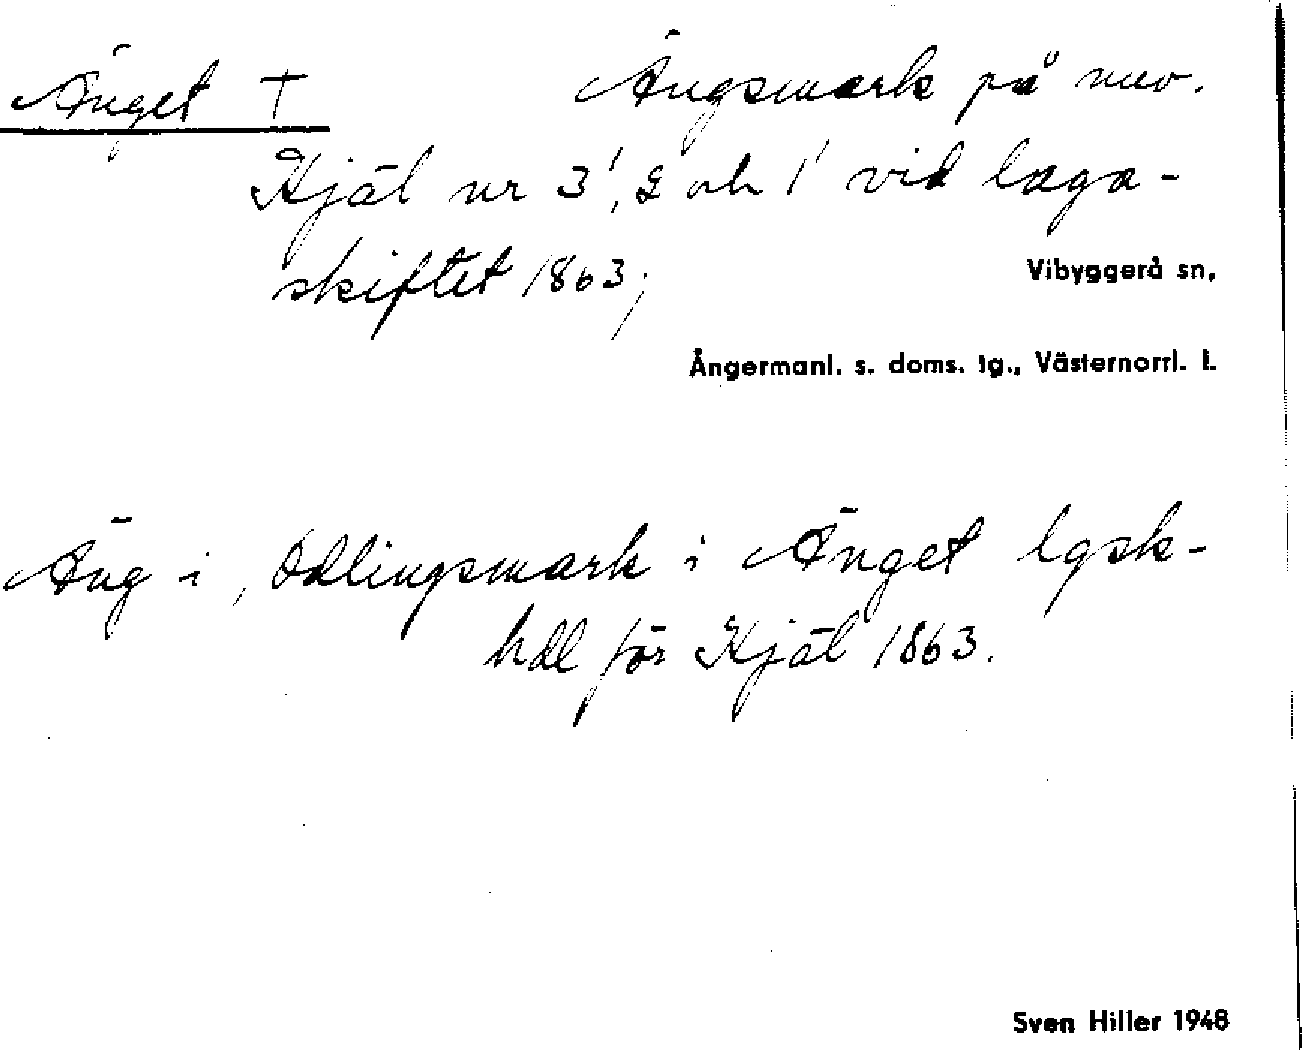 Änget † Ängsmark på nuv.
Kjäl nr 3¹, 2 och 1¹ vid laga-
skiftet 1863;
Vibyggerå sn,
Ångermanl. s. doms. tg., Västernorrl. l.
Äng i, Odlingsmark i Änget lgsk-
hdl för Kjäl 1863.
Sven Hiller 1948